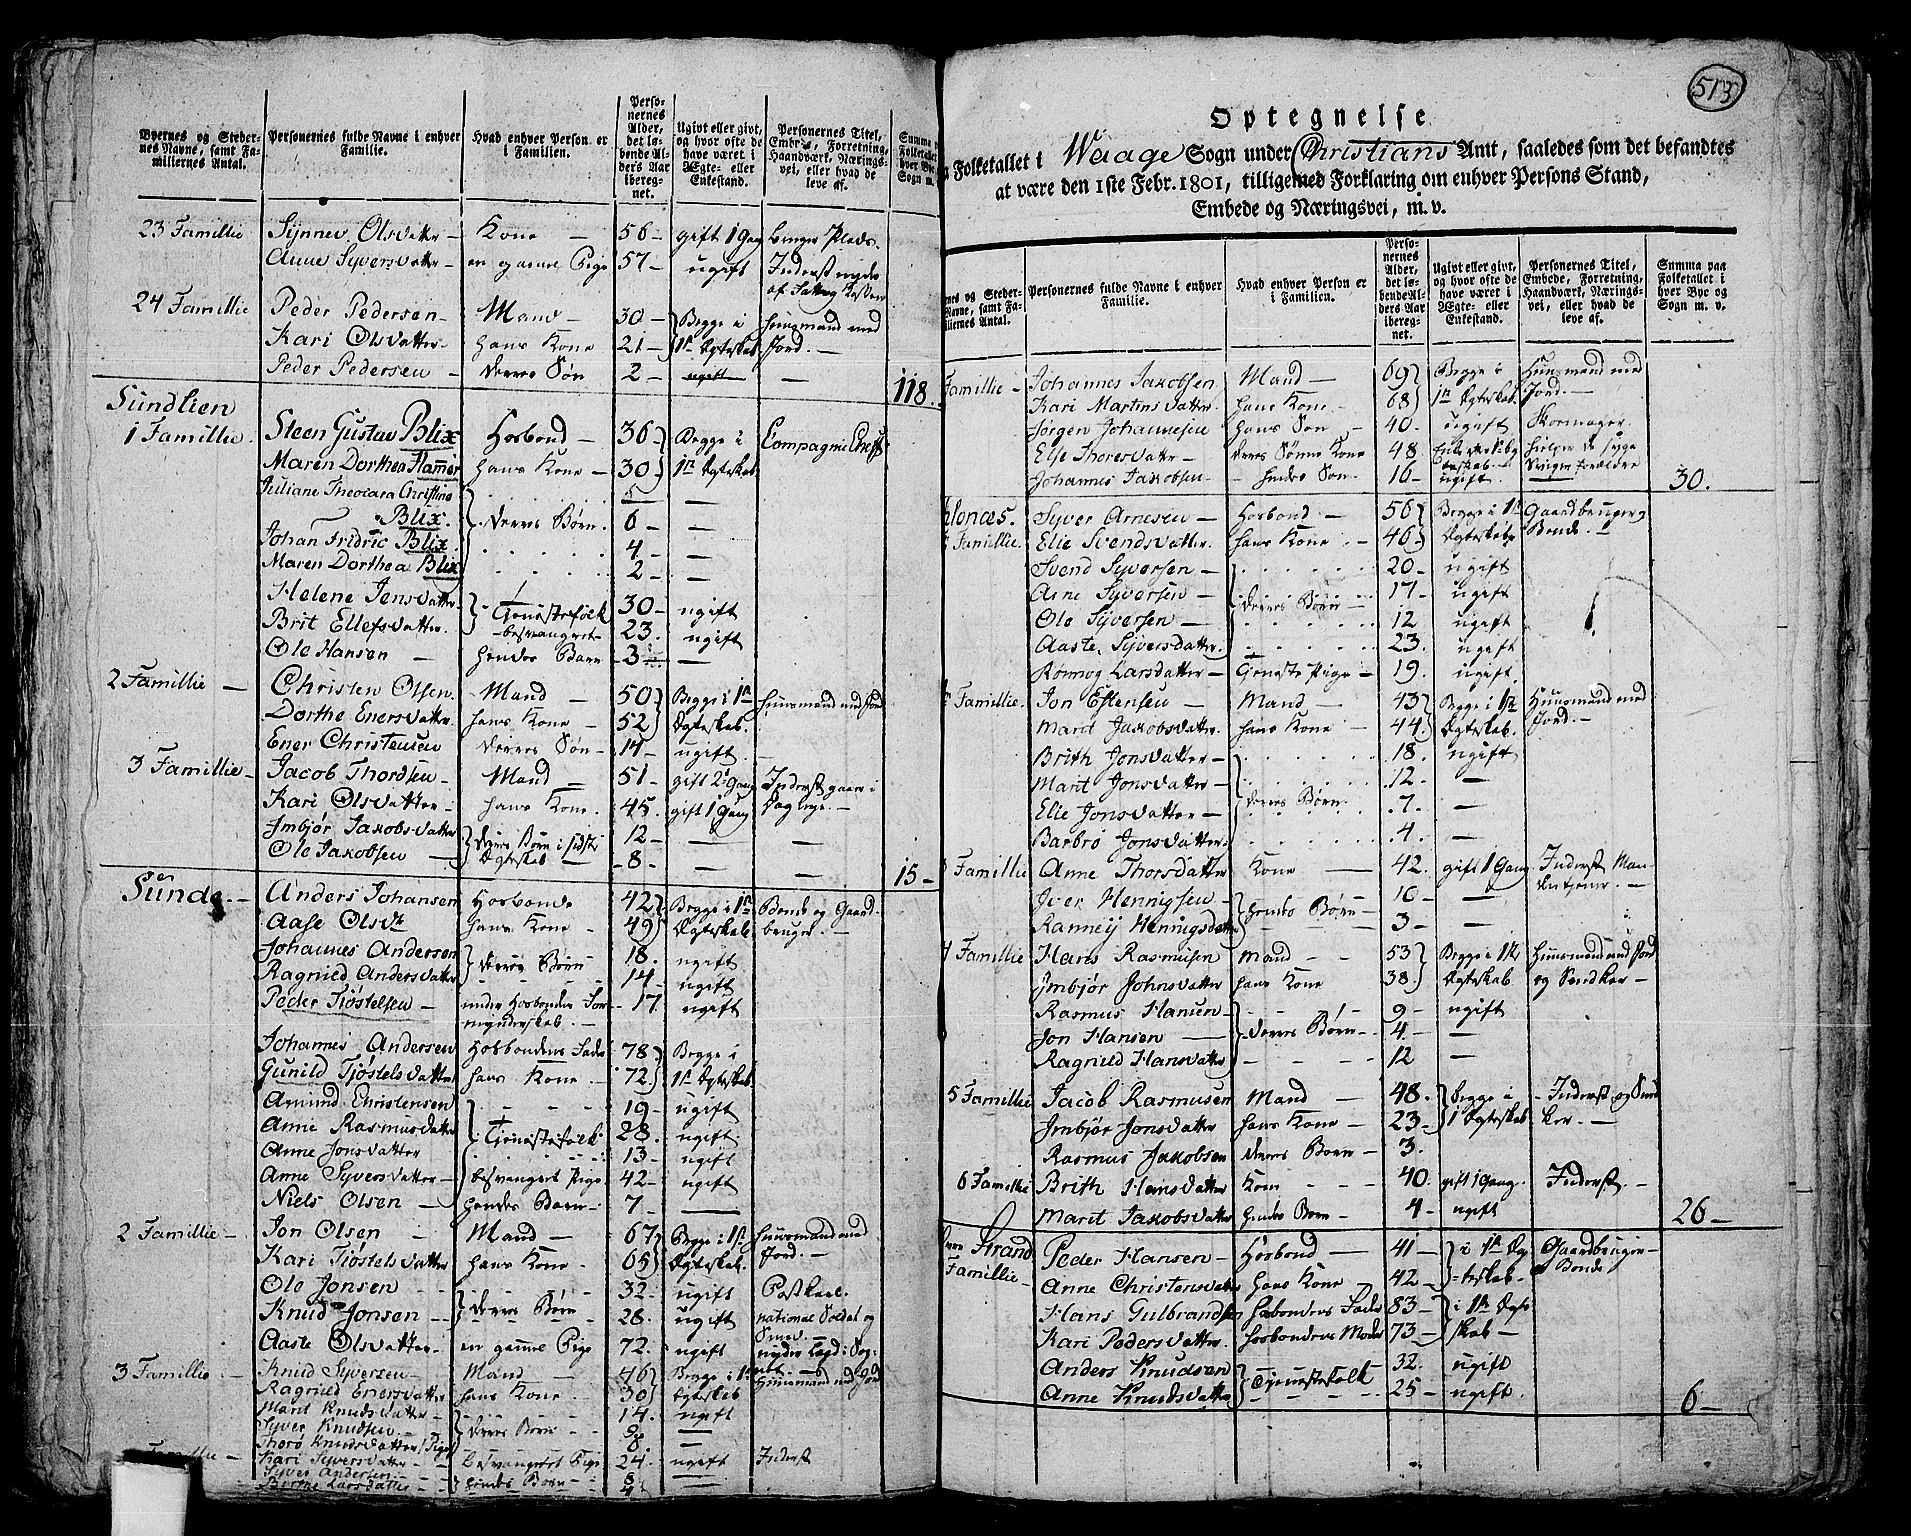 Byernes og Steder-nes Navne, samt Fa-miliernes Antal. | Personernes fulde Navne i enhver Familie. | Hvad enhver Person er i Familien. | Perso-nernes Alder, det lø-bende Al-ders Aar iberegnet. | Ugivt eller givt, og hvor ofte de have været i Ægte- eller Enkestand. | Personernes Titel, Embede, Forretning, Haandværk, Nærings-vei, eller hvad de leve af. | Summa
23 Famillie Synnev Olsdatter – Kone – 56 – gift 1 Gang
Anne Syversdatter – en gamel Pige 57 – ugift Inderst nyder
24 Famillie Peder Pedersen – Mand – 30 – Begge i Huusmand med
Kari Olsdatter – hans Kone 21 – 1te Ægteskab Jord. –
Peder Pedersen – deres Søn 2 – ugift –
118.
Sundlien
1 Famillie Steen Gustav Blix Hosbond – 36 Begge i Compagnie Chef
Maren Dorthea Hammer hans Kone – 30 1te Ægteskab
Juliane Theodara Christine
Blix. deres Børn. 6 – –
Johan Fridric Blix 4 – –
Maren Dorthea Blix 2 – –
Helene Jensdatter Tjenestefolk 30 – ugift
Brit Ellefsdatter – besvangret 23. ugift
Ole Hansen – hendes Barn – 3 –
2 Famillie – Christen Olsen Mand – 50 Begge i 1te Huusmand med Jord
Dorthe Enersdatter hans Kone – 52 Ægteskab.
Ener Christensen deres Søn – 14 – ugift –
3 Famillie – Jacob Thordsen – Mand – 51 – gift 2 Gang Inderst gaaer i
Kari Olsdatter – hans Kone. 45. gift 1 Gang Dagleye. –
Imbjør Jakobsdatter deres Børn i sidste 12 – –
Ole Jakobsen – Ægteskab – 8 – – –
15 –
Sunde. – Anders Johansen Hosbonde 42 Begge i 1te Bonde og Gaard-
Aase Olsdr hans Kone – 49 Ægteskab bruger. –
Johannes Andersen deres Børn 18. ugift
Ragnild Andersdatter 14 – ugift
Peder Tjøstelsen – under Hosbondens For- 17 ugift
mynderskab. –
Johannes Andersen Hosbondens Fader 78 Begge i
Gunild Tjøstelsdatter hans Kone – 72 1te Ægteskab
Amund Christensen 19 – ugift
Anne Rasmusdatter Tjenestefolk 28. ugift
Anne Jonsdatter 13 – ugift
Anne Syversdatter – besvangret Pige 42 – ugift
Niels Olsen – hendes Barn – 7 – –
2 Famillie – Jon Olsen – Mand – 67 Begge i 1te Huusmand med
Kari Tjøstelsdatter hans Kone – 65 Ægteskab. Jord. –
Ole Jonsen – deres Børn 32 – ugift Postkarl.
Knud Jonsen – 28. ugift national Soldat og
Aaste Olsdatter – en gammel Pige 72. ugift nyder Lægd i Sog-
3 Famillie – Knud Syversen – Mand – 46 Begge i 1te Huusmand med Jord
Ragnild Enersdatter hans Kone – 30 Ægteskab
Marit Knudsdatter – 14. ugift
Syver Knudsen – deres Børn – 9 –
Thorø Knudsdatter 8 –
Famillie – Kari Syversdatter – besvangret Pige 24 – ugift Inderst
Syver Andersen – hendes Børn –
Birthe Larsdatter
513
Optegnelse
Folketallet i Waage Sogn under Christians Amt, saaledes som det befandtes
at være den 1ste Febr. 1801, tilligemed Forklaring om enhver Persons Stand,
Embede og Næringsvei, m. v.
Personernes fulde Navne i enhver Familie. | Hvad enhver Person er i Familien. | Perso-nernes Alder, det lø-bende Al-ders Aar ibereg-net. | Ugivt eller givt, og hvor ofte de have været i Ægte- eller Enkestand. | Personernes Titel, Embede, Forretning, Haandværk, Nærings-vei, eller hvad de leve af. | Summa paa Folketallet i hver Bye og Sogn m. v.
Famillie – Johannes Jakobsen Mand – 69 Begge i Huusmand med
Kari Martinsdatter hans Kone – 68 1te Ægteskab. Jord. –
Jørgen Johannesen hans Søn – 40. ugift Skomager.
Else Thoresdatter – deres Sønne Kone 48 hielper de syge
Johannes Jakobsen – hendes Søn – 16 – ugift. –
30.
Syver Arnesen – Hosbond – 56 Begge i 1te Gaardbruger og
Famillie. Elie Svendsdatter. hans Kone – 46 Ægteskab Bonde. –
Svend Syversen – 20 – ugift
Arne Syversen – deres Børn – 17 – ugift
Ole Syversen – 12 ugift
Aaste Syversdatter. 23. ugift
Romog Larsdatter – Tjeneste Pige – 19. ugift.
Famillie. Jon Estensen – Mand – 43 Begge i 1te Huusmand med
Marit Jakobsdatter. hans Kone – 44 Ægteskab. Jord. –
Brith Jonsdatter – 18. ugift
Marit Jonsdatter – deres Børn. 12 – –
Elie Jonsdatter – 7 –
Barbro Jonsdatter. 4. –
3 Famillie Anne Thorsdatter Kone – 42. gift 1 Gang Inderst Man-
Iver Hennigsen – hendes Børn – 10 – –
Ranneij Henningsdatter 3 – –
4 Famillie Hans Rasmusen Mand – 53 Begge i 1te Huusmand med Jord
Imbjør Johnsdatter hans Kone 38. Ægteskab
Rasmus Hansen – deres Børn – 9 – ugift
Jon Hansen – 4 – –
Ragnild Hansdatter – 12 –
5 Famillie Jacob Rasmusen Mand – 48. Begge i – Inderst og
Imbjør Jonsdatter hans Kone – 23 – 1 Ægteskab
Rasmus Jakobsen deres Børn – 3.
6 Famillie Brith Hansdatter Kone – 40. gift 1 Gang. Inderst. –
Marit Jakobsdatter hendes Børn – 4 – ugift
26 –
Strand Peder Hansen – Hosbond – 41 – i 1te Æg Gaardbruger –
Famillie – Anne Christensdatter hans Kone 42 – teskab. Bonde. –
Hans Gulbrandsen hosbondens Fader 83 – i 1te Ægte
Kari Pedersdatter. hosbondens Moder 73 – skab –
Anders Knudsen Tjenestefolk 32. ugift
Anne Knudsdatter 25 – ugift.
6 –